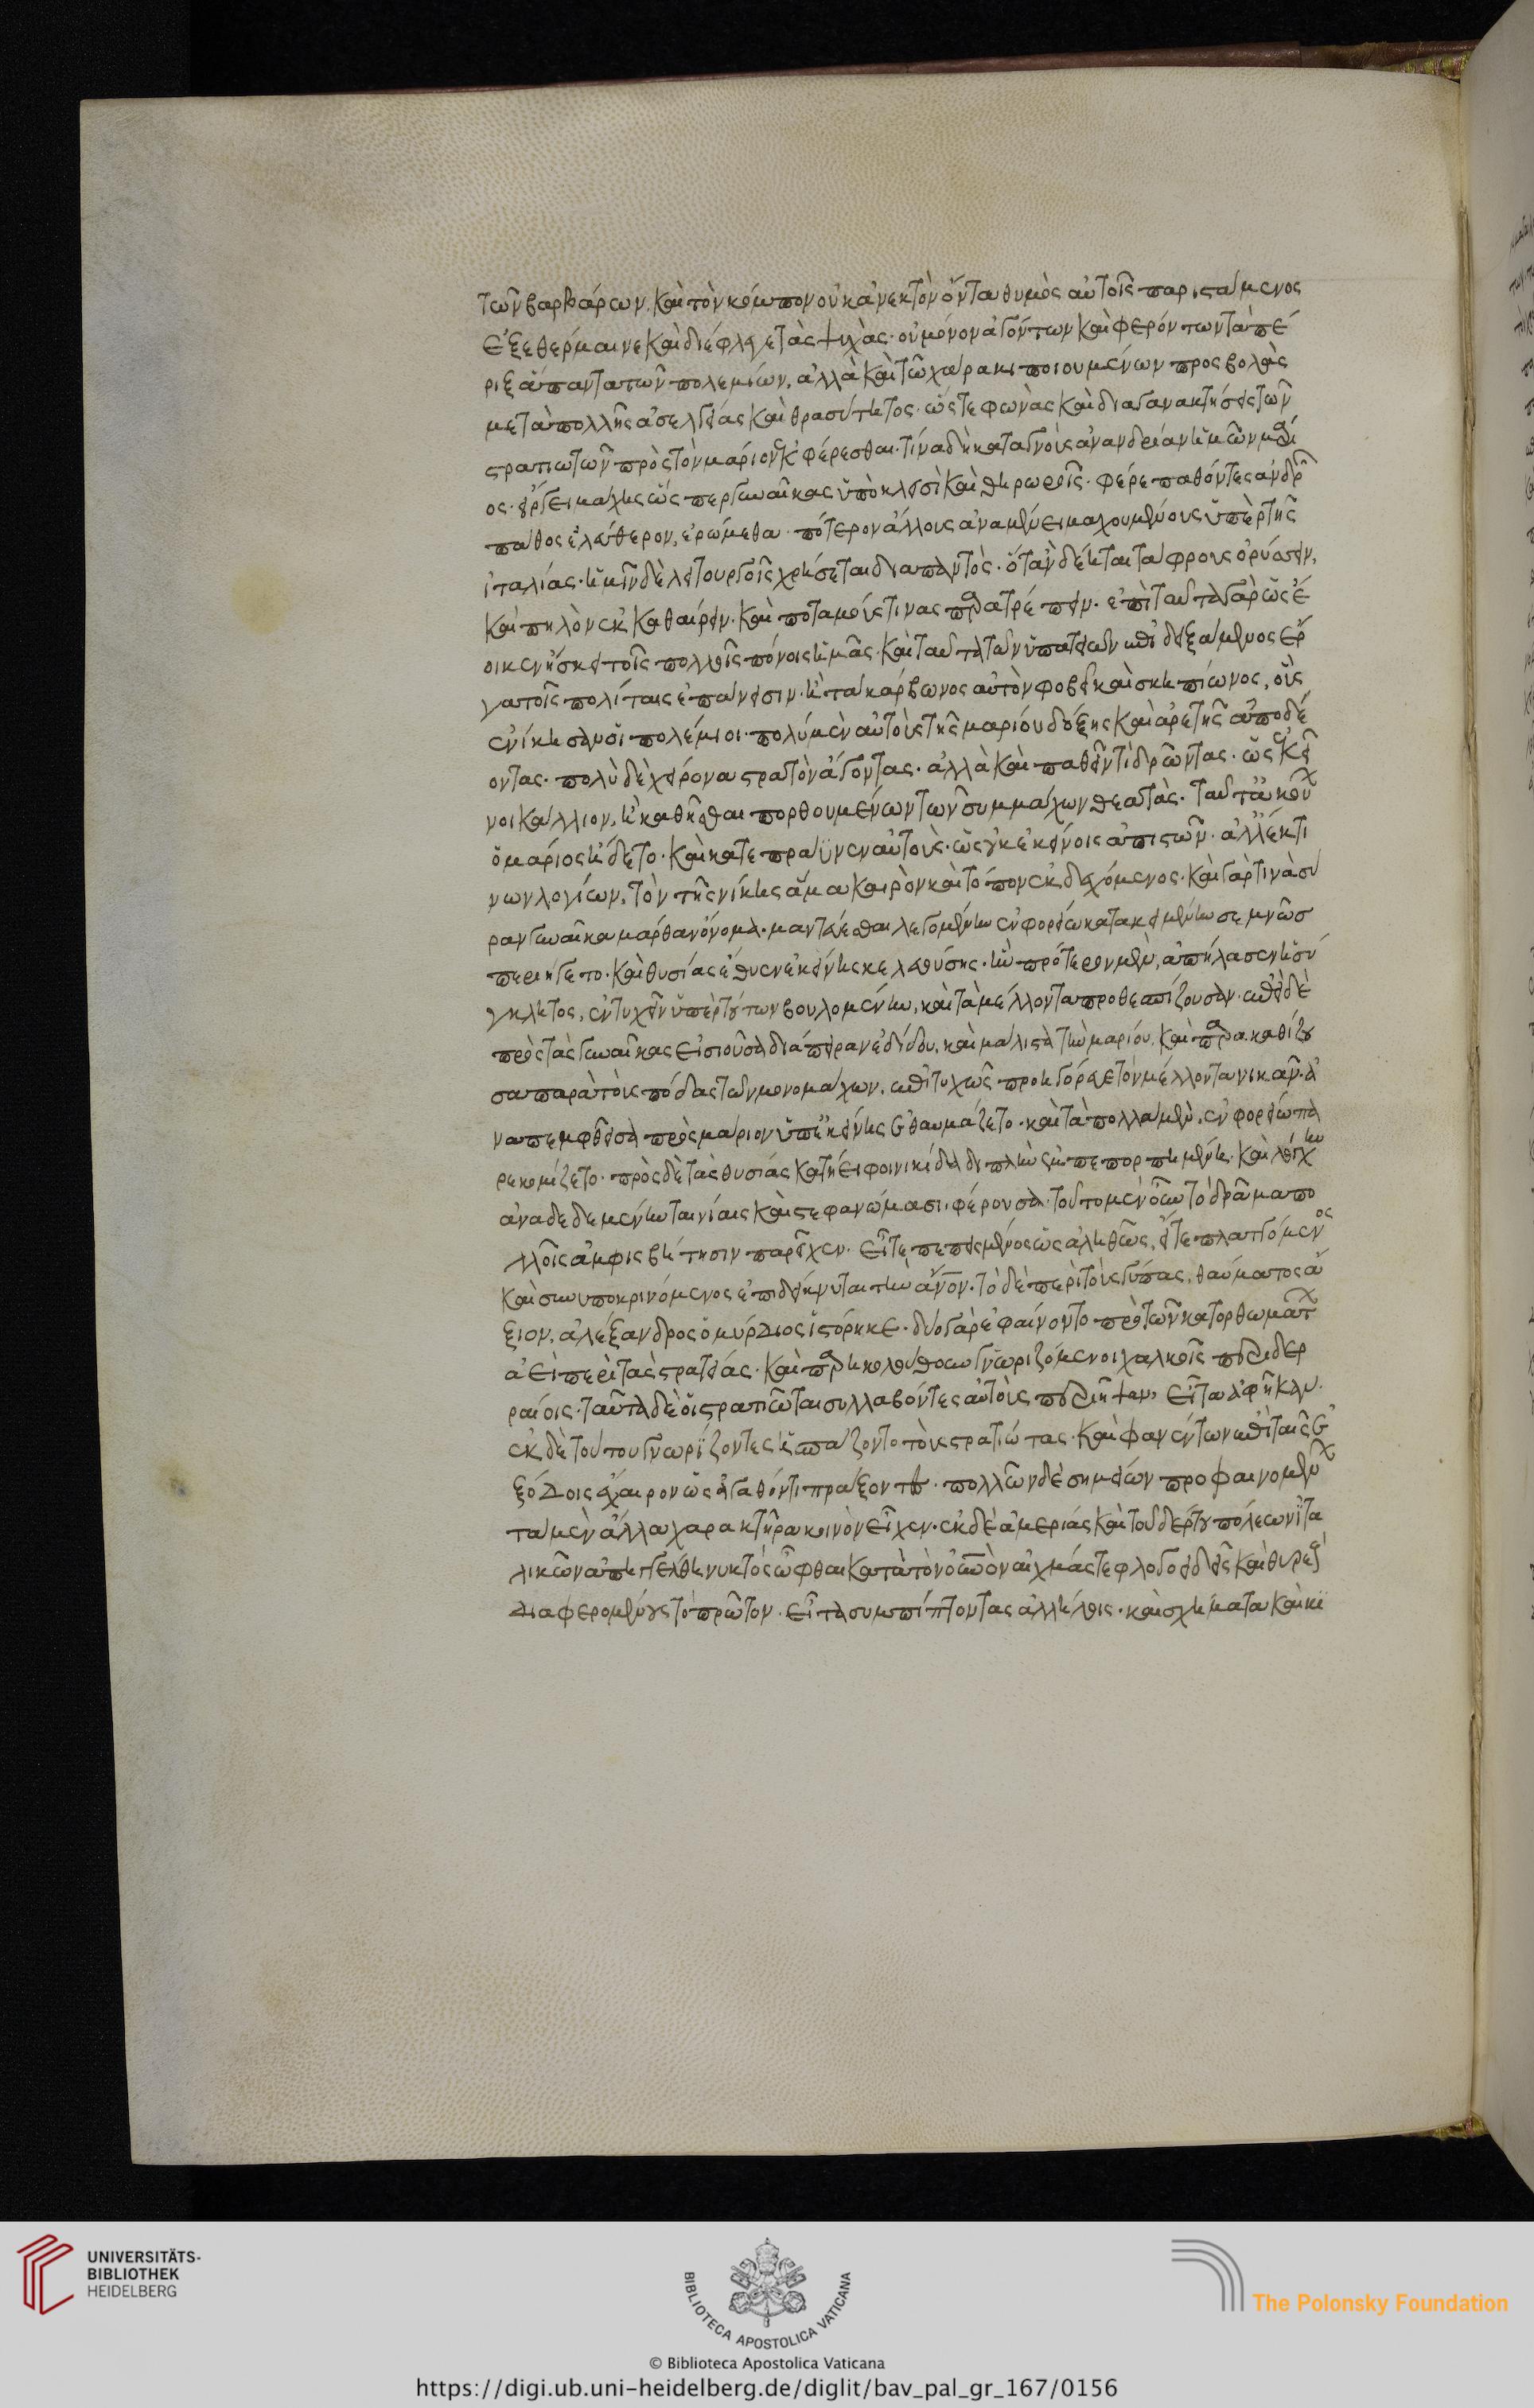 τῶν βαρβάρων. καὶ τὸν κόμπον οὐκ ἀνεκτὸν ὄντα θυμὸς αὐτοῖς παριστάμενος
ἐξεθέρμαινε καὶ διέφλεγε τὰς ψυχάς. οὐ μόνον ἀγόντων καὶ φερόντων τὰ πέ
ριξ ἅπαντα τῶν πολεμίων, ἀλλὰ καὶ τῷ χάρακι ποιουμένων προσβολὰς
μετὰ πολλῆς ἀσελγείας καὶ θρασύτητος. ὥστε φωνὰς καὶ διαγανακτήσεις τῶν
στρατιωτῶν πρὸς τὸν μάριον ἐκφέρεσθαι. τίνα δὴ καταγνοὺς ἀνανδρίαν ἡμῶν μάρι
ος. εἴργει μάχης ὥσπερ γυναῖκας ὑπὸ κλεισὶ καὶ θυρωροῖς. φέρε παθόντες ἀνδρῶν
πάθος ἐλευθέρων, ἐρώμεθα πότερον ἄλλους ἀναμένει μαχουμένους ὑπὲρ τῆς
ἰταλίας. ἡμῖν δὲ λειτουργοῖς χρήσεται διαπαντὸς. ὅταν δέηται τάφρους ὀρύσσειν,
καὶ πηλὸν ἐκκαθαίρειν. καὶ ποταμούς τινας παρατρέπειν. ἐπὶ ταῦτα γὰρ ὡς ἔ
οικεν ἤσκει τοῖς πολλοῖς πόνοις ἡμᾶς. καὶ ταῦτα τῶν ὑπατειῶν ἀποδειξάμενος ἔρ
γα τοῖς πολίταις ἐπάνεισιν. ἢ τὰ κάρβωνος αὐτὸν φοβεῖ καὶ σκηπίωνος, οὓς
ἐνίκησαν οἱ πολέμιοι. πολὺ μὲν αὐτοὺς τῆς μαρίου δόξης καὶ ἀρετῆς ἀποδέ
οντας. πολὺ δὲ χείρονα στρατὸν ἄγοντας. ἀλλὰ καὶ παθεῖν τὶ δρῶντας. ὡς ἐκεῖ
νοι κάλλιον, ἢ καθῆσθαι πορθουμένων τῶν συμμάχων θεατὰς. ταῦτα ἀκούων
ὁ μάριος ἥδετο. καὶ κατεπράϋνεν αὐτοὺς. ὡς οὐκ ἐκείνοις ἀπιστῶν. ἀλλ' ἔκ τι
νων λογίων, τὸν τῆς νίκης ἅμα καιρὸν καὶ τόπον ἐκδεχόμενος. καὶ γάρ τινα σύ
ραν γυναῖκα μάρθαν ὄνομα. μαντεύεσθαι λεγομένην ἐν φορείῳ κατακειμένην σεμνῶσ
περιήγετο. καὶ θυσίας ἔθυεν ἐκείνης κελευούσης. ἣν πρότερον μὲν, ἀπήλασεν ἡ σύ
γκλητος, ἐντυχεῖν ὑπὲρ τούτων βουλομένην, καὶ τὰ μέλλοντα προθεσπίζουσαν. ἐπεὶ δὲ
πρὸς τὰς γυναῖκας εἰσιοῦσα διάπειραν ἐδίδου, καὶ μάλιστα τὴν μαρίου, καὶ παρακαθίζου
σα παρὰ τοὺς πόδας τῶν μονομάχων. ἐπιτυχῶς προηγόρευε τὸν μέλλοντα νικᾶν. ἀ
ναπεμφθεῖσα πρὸς μάριον ὑπ' ἐκείνης ἐθαυμάζετο. καὶ τὰ πολλὰ μὲν, ἐν φορείῳ πα
ρεκομίζετο. πρὸς δὲ τὰς θυσίας κατῄει φοινικίδα διπλῆν ἐμπεπορπημένη. καὶ λόγχην
ἀναδεδεμένην ταινίαις καὶ στεφανώμασι. φέρουσα. τοῦτο μὲν οὖν τὸ δρᾶμα πο
λλοῖς ἀμφισβήτησιν παρεῖχεν. εἴτε πεπεισμένος ὡς ἀληθῶς, εἴτε πλαττόμενος
καὶ συνυποκρινόμενος ἐπιδείκνυται τὴν ἄνθρωπον. τὸ δὲ περὶ τοὺς γύπας, θαύματος ἄ
ξιον, ἀλέξανδρος ὁ μύνδιος ἱστόρηκε. δύο γὰρ ἐφαίνοντο πρὸ τῶν κατορθωμάτων
ἀεὶ περὶ τὰς στρατείας. καὶ παρηκολούθουν γνωριζόμενοι χαλκοῖς περιδερ
ραίοις. ταῦτα δὲ οἱ στρατιῶται συλλαβόντες αὐτοὺς περιῆψαν, εἶτα ἀφῆκαν.
ἐκ δὲ τούτου γνωρίζοντες ἠσπάζοντο τοὺς στρατιώτας. καὶ φανέντων ἐπὶ ταῖς ἐ
ξόδοις ἔχαιρον ὡς ἀγαθόν τι πράξοντες. πολλῶν δὲ σημείων προφαινομένων
τὰ μὲν ἄλλα χαρακτῆρα κοινὸν εἶχεν. ἐκ δὲ ἀμερίας καὶ τουδέρτου πόλεων ἰτα
λικῶν ἀπηγγέλθη νυκτὸς ὦφθαι κατὰ τὸν οὐρανὸν αἰχμάς τε φλογοειδεῖς καὶ θυρεοὺς
διαφερομένους τὸ πρῶτον. εἶτα συμπίπτοντας ἀλλήλοις. καὶ σχήματα καὶ κι
UNIVERSITÄTS-
BIBLIOTHEK
HEIDELBERG
BIBLIOTECA APOSTOLICA VATICANA
The Polonsky Foundation
© Biblioteca Apostolica Vaticana
https://digi.ub.uni-heidelberg.de/diglit/bav_pal_gr_167/0156